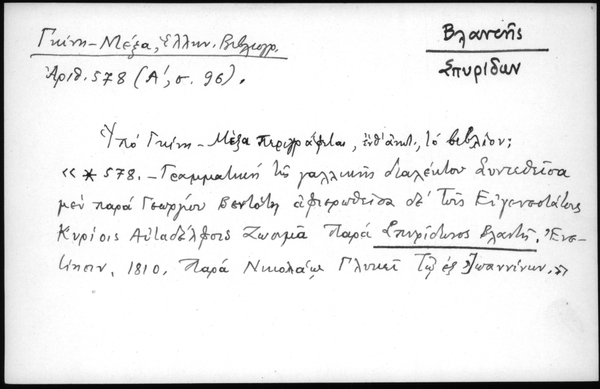 Γκίνη-Μέξα, Ἑλλην. Βιβλιογρ.
Ἀριθ. 578 (Α', σ. 96).
Βλαντῆς
Σπυρίδων
Ὑπό Γκίνη-Μέξα περιγράφεται, , τό βιβλίον:
«*578.- Γραμματική τῆς γαλλικῆς διαλέκτου Συντεθεῖσα
μέν παρά Γεωργίου Βεντότη ἀφιερωθεῖσα δέ Τοῖς Εὐγενεστάτοις
Κυρίοις Αὐταδέλφοις Ζωσιμᾶ Παρά Σπυρίδωνος Βλαντῆ. Ἐνε-
τίησιν, 1810. Παρά Νικολάῳ Γλυκεῖ Τῷ ἐξ Ἰωαννίνων.»